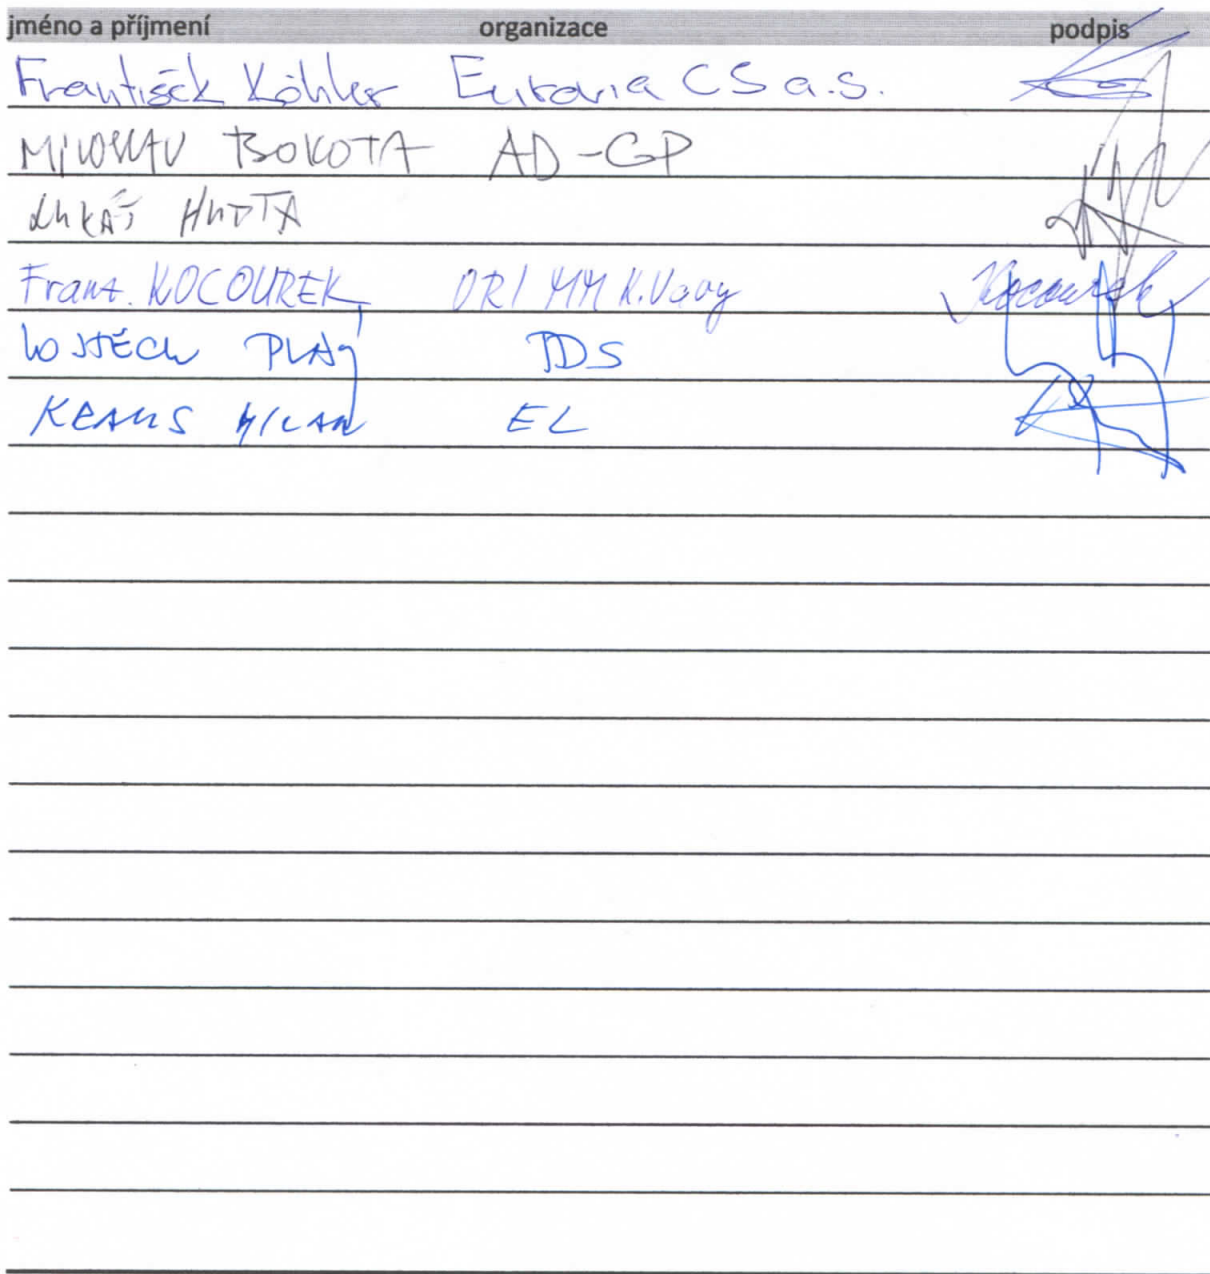 jméno a příjmení organizace podpis
František Köhler Eurovia CS a.s.
MILOSLAV BOKOTA AD-GP
LUKÁŠ HUTTA
Frant. KOCOUREK ORI MM K.Vary Kocourek
VOJTĚCH TDS
KRAUS MILAN EL